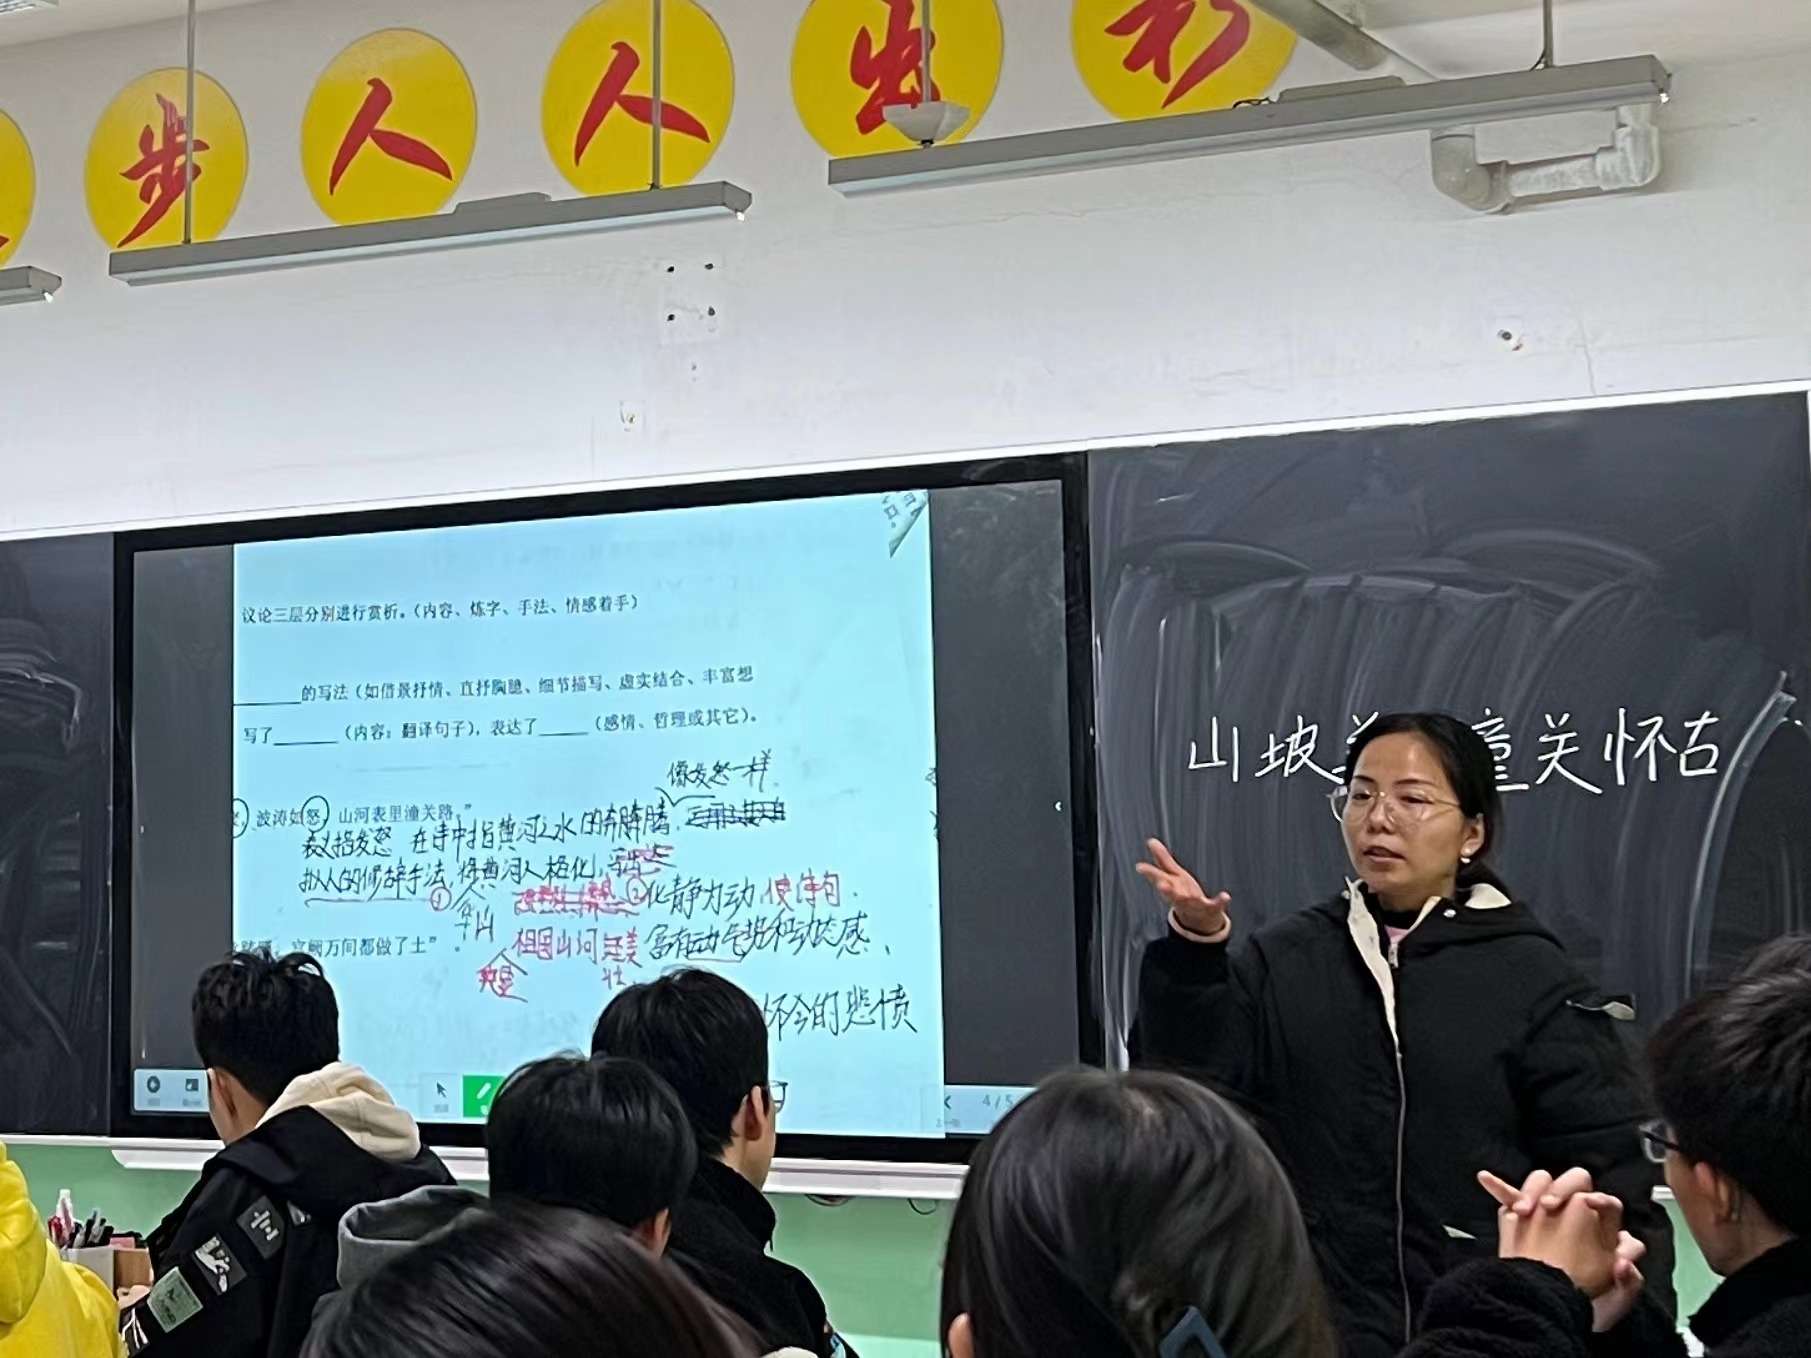 步人人出彩
议论三层分别进行赏析。（内容、炼字、手法、情感着手）
的写法（如借景抒情、直抒胸臆、细节描写、虚实结合、丰富想
写了______（内容：翻译句子），表达了______（感情、哲理或其它）。
像发怒一样
波涛如怒，山河表里潼关路。”
表义指发怒 在诗中指黄河之水的奔腾
拟人的修辞手法，将黄河人格化，
① 华山 ②化静为动，使诗句
祖国山河 壮美 富有动气势和动态感、
宫阙万间都做了土”。
怀今的悲愤
4/5
山坡 潼关怀古